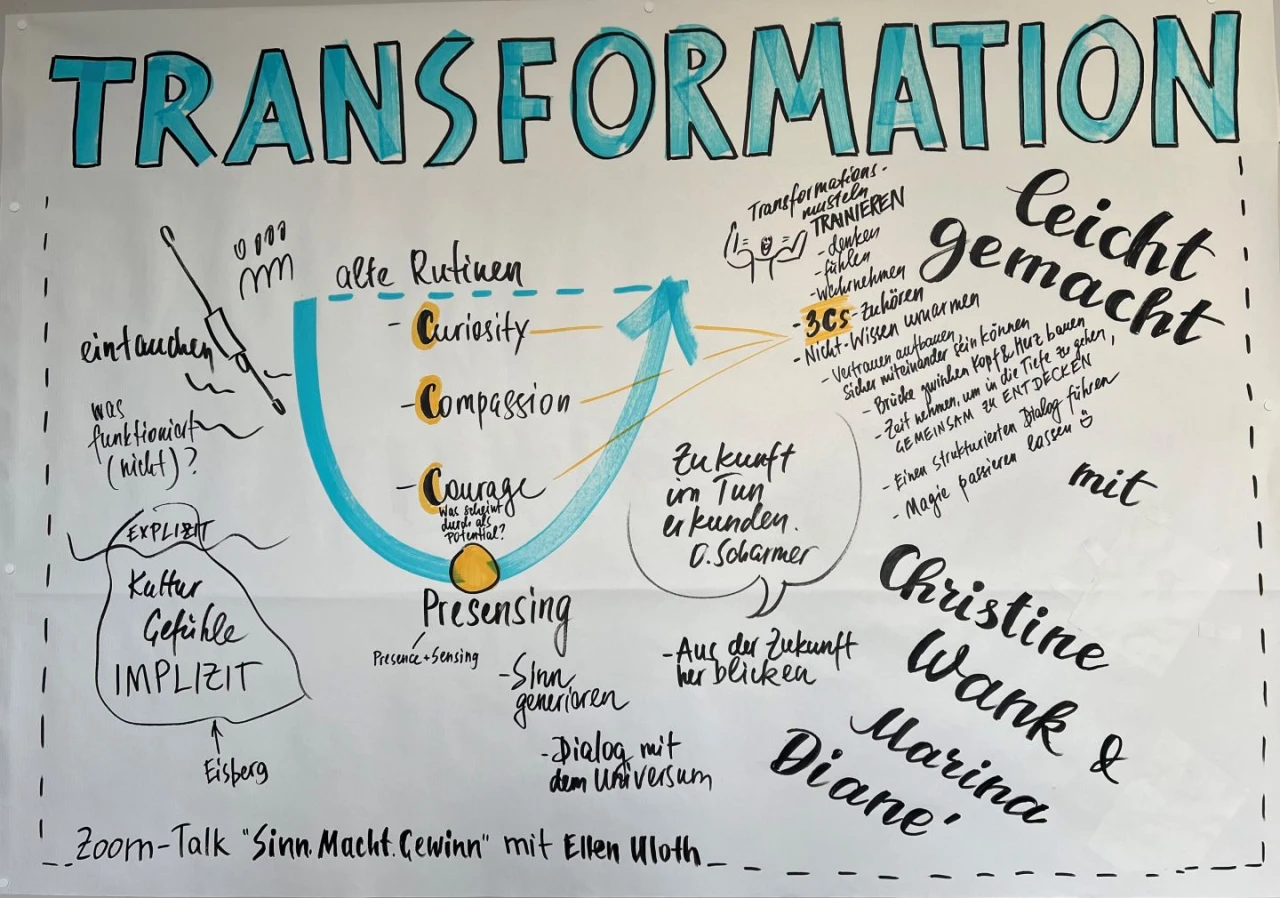 TRANSFORMATION
leicht
gemacht
mit
Christine
Wank &
Marina
Diane'
eintauchen
was
funktioniert
(nicht)?
EXPLIZIT
Kultur
Gefühle
IMPLIZIT
Eisberg
alte Rutinen
- Curiosity
- Compassion
- Courage
Was scheint
durch als
POTENTIAL?
Presensing
Presence + Sensing
- Sinn
generieren
- Dialog mit
dem Universum
Zukunft
im Tun
erkunden.
O. Scharmer
- Aus der Zukunft
her blicken
Transformations-
muskeln
TRAINIEREN
- denken
- fühlen
- wahrnehmen
- 3Cs - Zuhören
- Nicht-Wissen umarmen
- Vertrauen aufbauen,
sicher miteinander sein können
- Brücke zwischen Kopf & Herz bauen
- Zeit nehmen, um in die Tiefe zu gehen,
GEMEINSAM ZU ENTDECKEN
- Einen strukturierten Dialog führen
- Magie passieren lassen ☺
Zoom-Talk "Sinn.Macht.Gewinn" mit Ellen Uloth